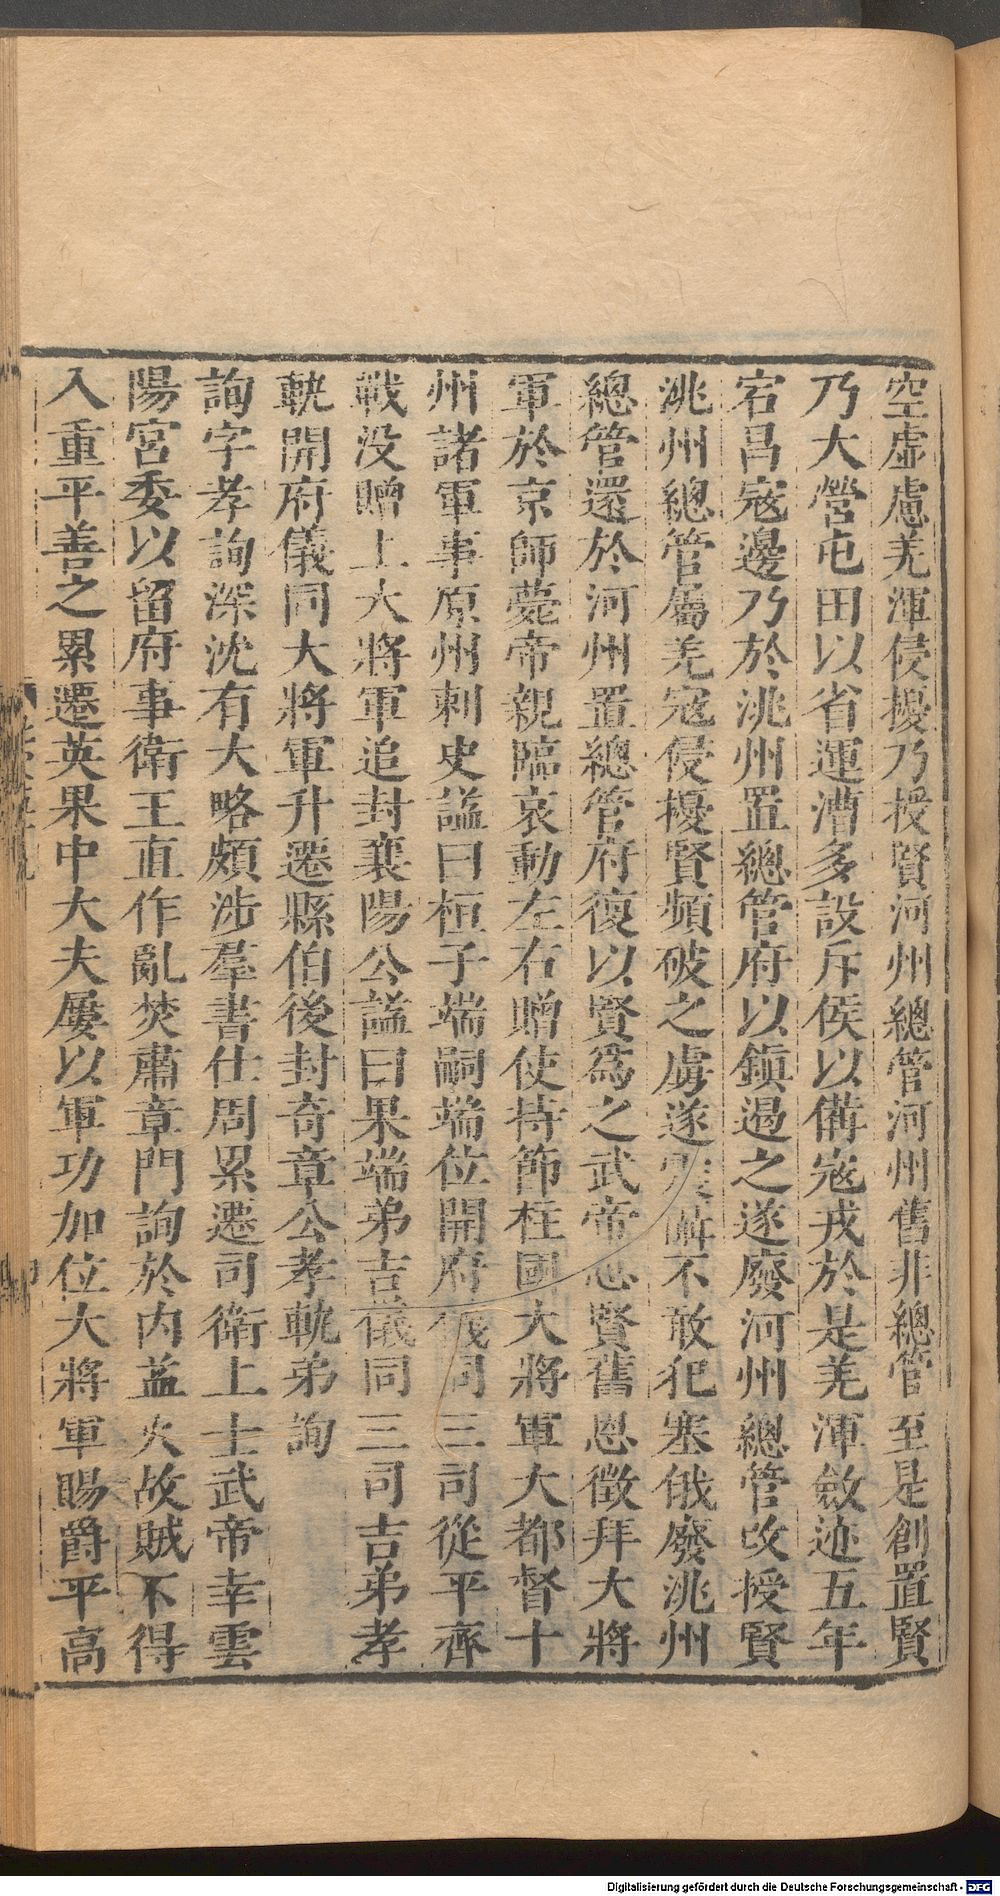 空虛慮羌渾侵擾乃授賢河州總管河州舊非總管至是創置賢
乃大營屯田以省運漕多設斥侯以備寇戎於是羌渾斂迹五年
宕昌寇邊乃於洮州置總管府以鎮遏之遂廢河州總管改授賢
洮州總管屬羌寇侵擾賢頻破之虜遂震讋不敢犯塞俄廢洮州
總管還於河州置總管府復以賢爲之武帝思賢舊恩徵拜大將
軍於京師薨帝親臨哀動左右贈使持節柱國大將軍大都督十
州諸軍事原州刺史諡曰桓子端嗣端位開府儀同三司從平齊
戰没贈上大將軍追封襄陽公諡曰果端弟吉儀同三司吉弟孝
軌開府儀同大將軍升遷縣伯後封奇章公孝軌弟詢
詢字孝詢深沈有大略頗涉羣書仕周累遷司衛上士武帝幸雲
陽宮委以留府事衛王直作亂焚肅章門詢於内益火故賊不得
入重平善之累遷英果中大夫屢以軍功加位大將軍賜爵平高
Digitalisierung gefördert durch die Deutsche Forschungsgemeinschaft - DFG